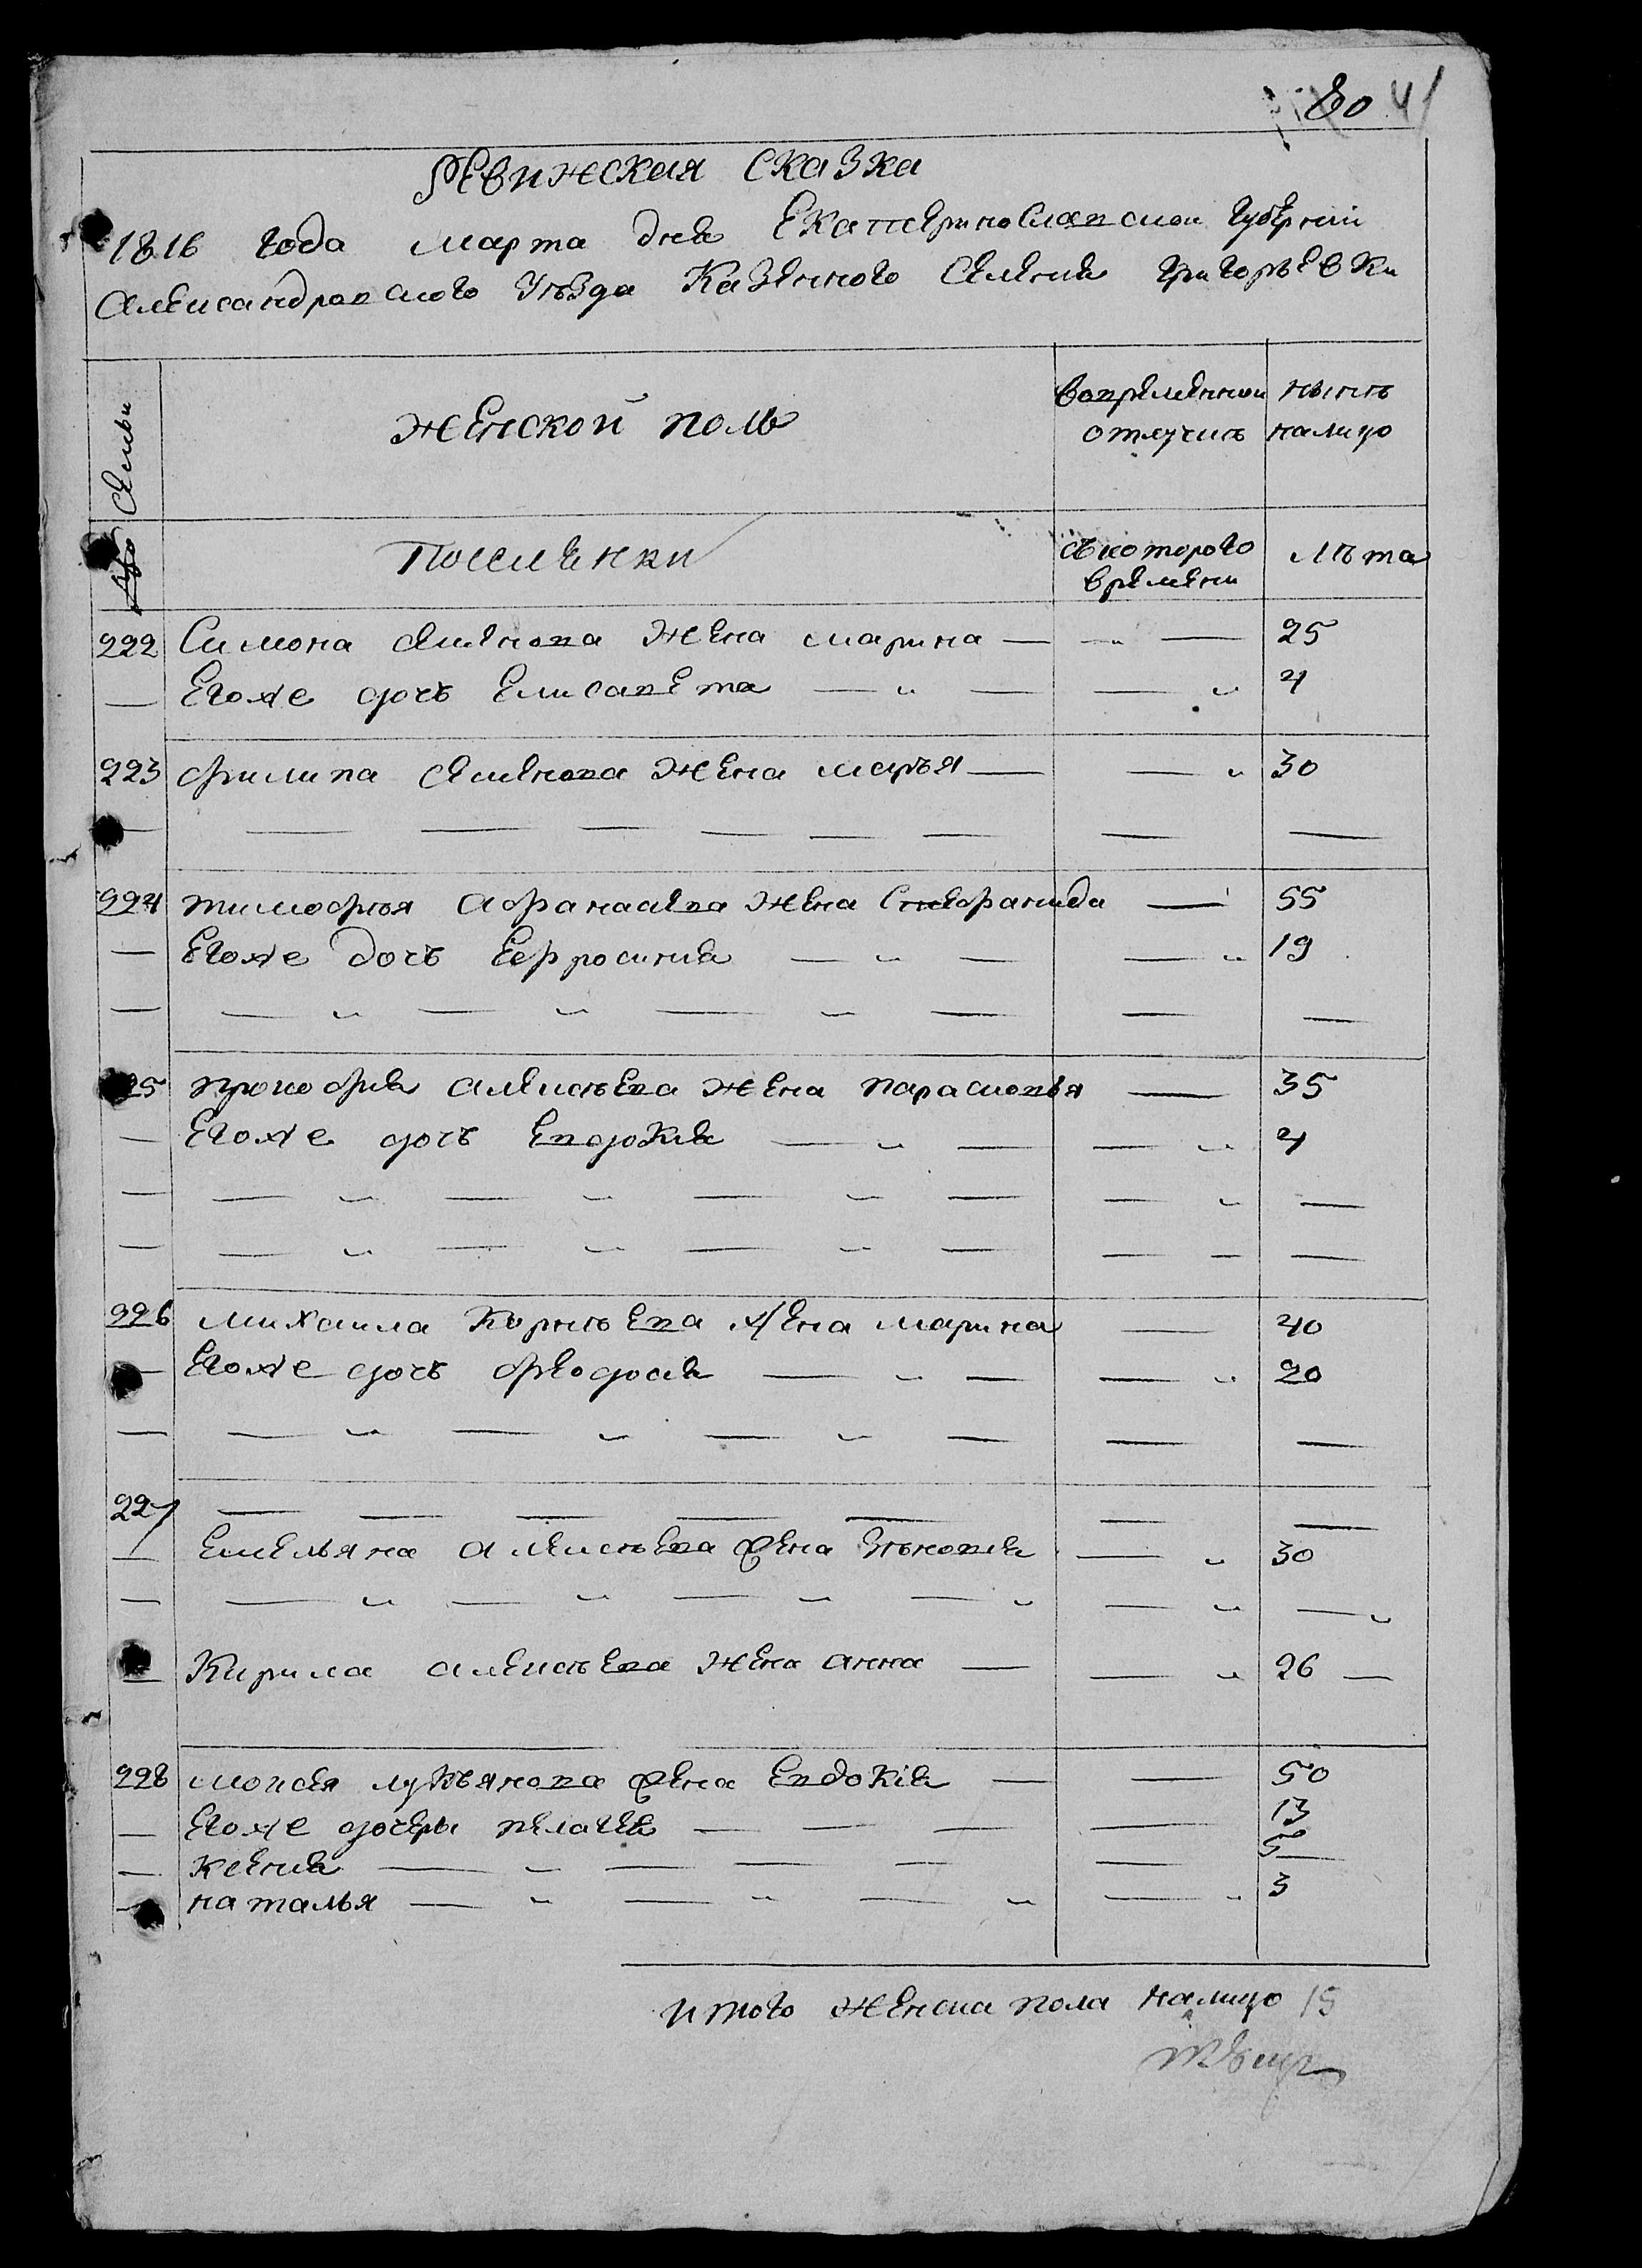 80 41
Ревижская сказка
1816 года марта дня Екатеринославской губернии
Александровского уезда Казенного Селения Григорьевки
Семьи
Женской полъ
во временной
отлучке
ныне
налицо
Поселенки
съ которого
времени
лъта
222 Симона Семенова жена марина — — „ — 25
— Егоже дочь Елисавета — „ — — „ 4
223 филипа Семенова жена марья — — „ 30
— — — — — — — — —
224 тимофъя афанасева жена Стефанида — 55
— Егоже дочь Ефросиния — „ — — „ 19
— — „ — „ — „ — — —
225 прокофия алексъева жена парасковья — 35
— Егоже дочь Евдокия — „ — — „ 4
— — „ — „ — „ — — „ —
— — „ — „ — „ — — — —
226 михаила Корнъева жена марина — 40
— Егоже дочь феодосия — „ — — „ 20
— — „ — „ — „ — — —
227 — — — — — — —
— Емельяна алексъева жена Зъновия — „ 30
— — „ — „ — „ — „ — „ — „
— Кирила алексъева жена анна — — „ 26 —
228 моисея лукьянова жена Евдокия — — 50
— Егоже дочери пелагея — — — — 13
— ксения — „ — — — — 5 —
— наталья — „ — „ — „ — „ 3
итого женска пола налицо 15